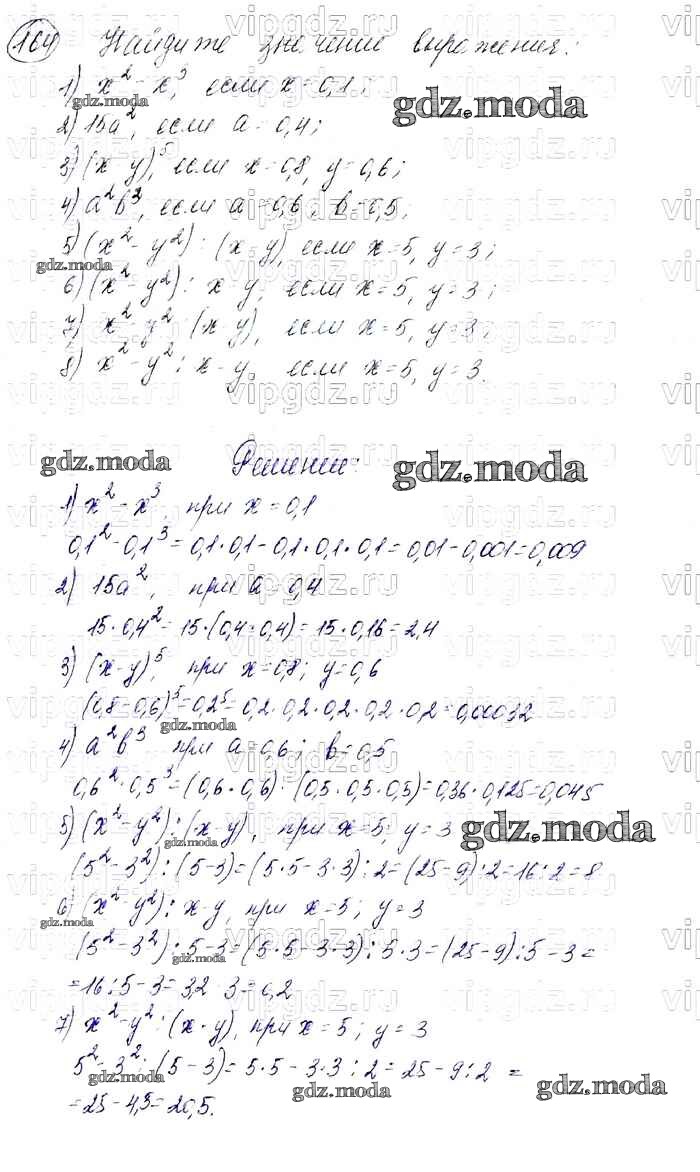 164 Найдите значение выражения:
1) x² - x³, если x = 0,1;
2) 15a², если a = 0,4;
3) (x - y)⁵, если x = 0,8, y = 0,6;
4) a²b³, если a = 0,6, b = 0,5;
5) (x² - y²) : (x - y), если x = 5, y = 3;
6) (x² - y²) : x - y, если x = 5, y = 3;
7) x² - y² : (x - y), если x = 5, y = 3;
8) x² - y² : x - y, если x = 5, y = 3.
Решение:
1) x² - x³, при x = 0,1
0,1² - 0,1³ = 0,1 · 0,1 - 0,1 · 0,1 · 0,1 = 0,01 - 0,001 = 0,009
2) 15a², при a = 0,4
15 · 0,4² = 15 · (0,4 · 0,4) = 15 · 0,16 = 2,4
3) (x - y)⁵, при x = 0,8; y = 0,6
(0,8 - 0,6)⁵ = 0,2⁵ = 0,2 · 0,2 · 0,2 · 0,2 · 0,2 = 0,00032
4) a²b³ при a = 0,6; b = 0,5
0,6² · 0,5³ = (0,6 · 0,6) · (0,5 · 0,5 · 0,5) = 0,36 · 0,125 = 0,045
5) (x² - y²) : (x - y), при x = 5; y = 3
(5² - 3²) : (5 - 3) = (5 · 5 - 3 · 3) : 2 = (25 - 9) : 2 = 16 : 2 = 8
6) (x² - y²) : x - y, при x = 5; y = 3
(5² - 3²) : 5 - 3 = (5 · 5 - 3 · 3) : 5 - 3 = (25 - 9) : 5 - 3 =
= 16 : 5 - 3 = 3,2 - 3 = 0,2
7) x² - y² : (x - y), при x = 5; y = 3
5² - 3² : (5 - 3) = 5 · 5 - 3 · 3 : 2 = 25 - 9 : 2 =
= 25 - 4,5 = 20,5.